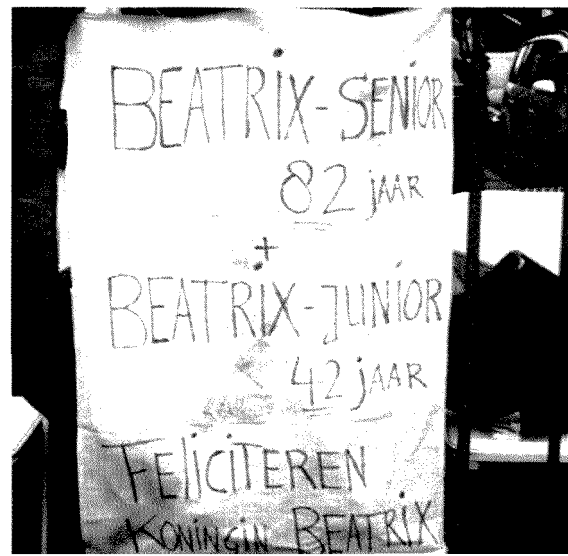 BEATRIX-SENIOR
82 jAAR
+
BEATRIX-JUNIOR
42 jAAR
FELICITEREN
KONINGIN BEATRIX